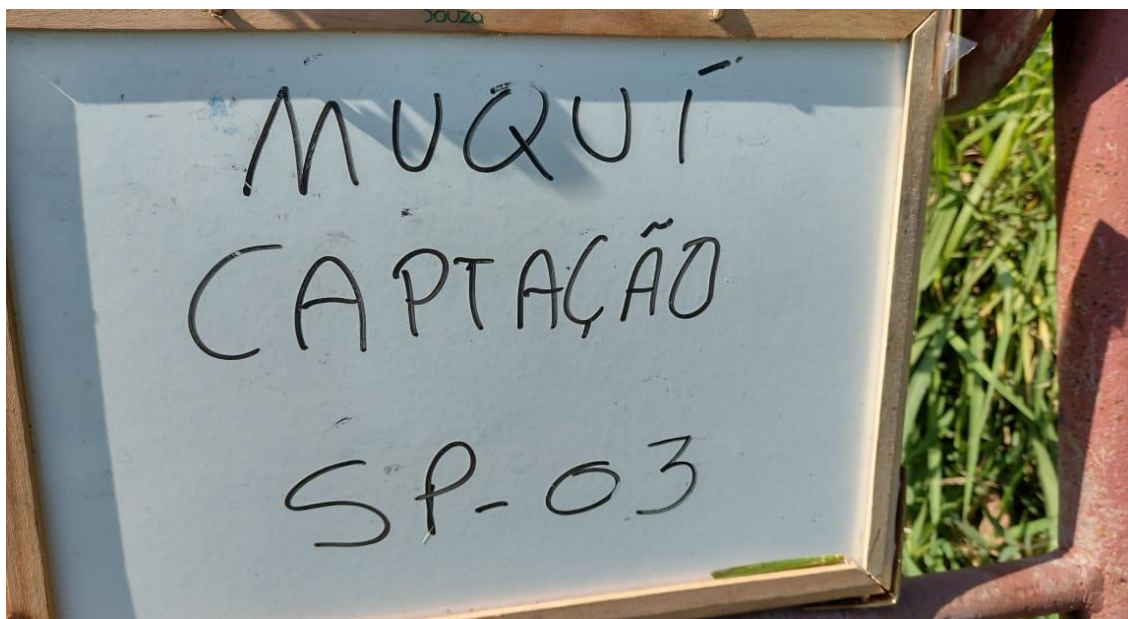 Souza
MUQUÍ
CAPTAÇÃO
SP-03